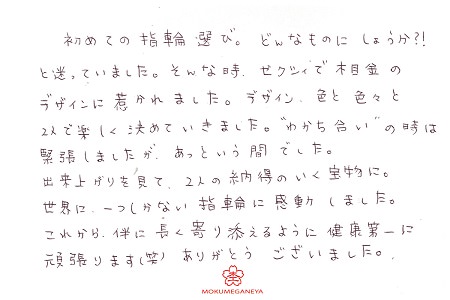 初めての指輪選び。どんなものにしょうか?!
と迷っていました。そんな時、ゼクシィで木目金の
デザインに惹かれました。デザイン、色と色々と
2人で楽しく決めていきました。"わかち合い"の時は
緊張しましたが、あっという間でした。
出来上がりを見て、2人の納得のいく宝物に。
世界に、一つしかない指輪に感動しました。
これから、伴に長く寄り添えるように健康第一に
頑張ります(笑)ありがとうございました。
MOKUMEGANEYA